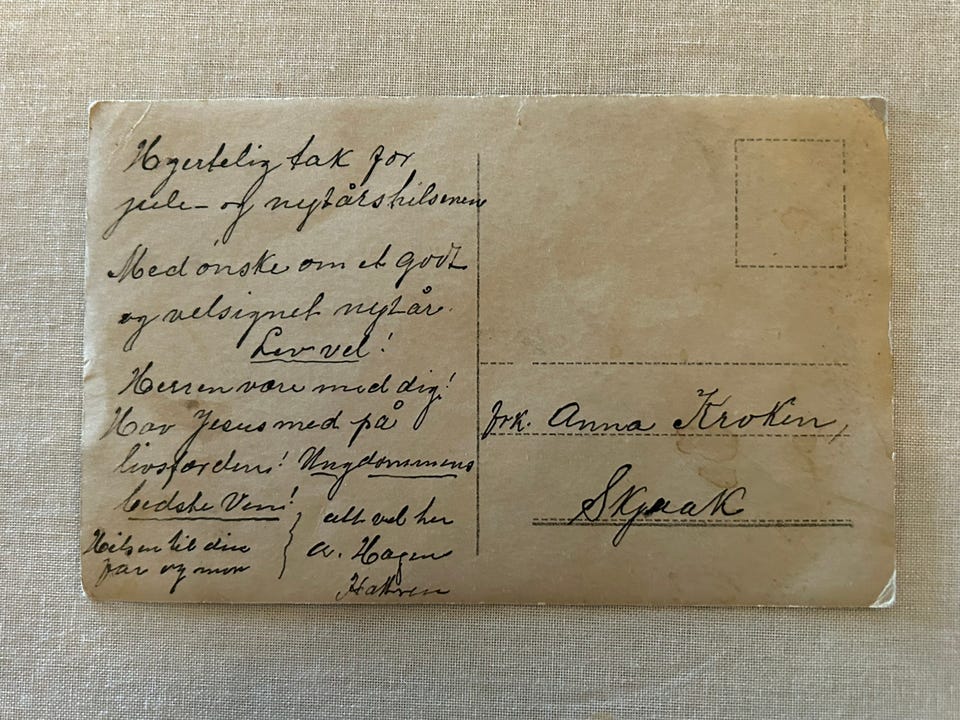 Hgertelig tak for
jule- og nytårshilsenen
Med ønske om et godt
og velsignet nytår.
Lev vel!
Herren være med dig!
Hav Jesus med på
livsfærden! Ungdommens
bedste Ven!
Hilsen til din
far og mor
alt vel her
A. Hagen
frk. Anna Kroken,
Skjaak